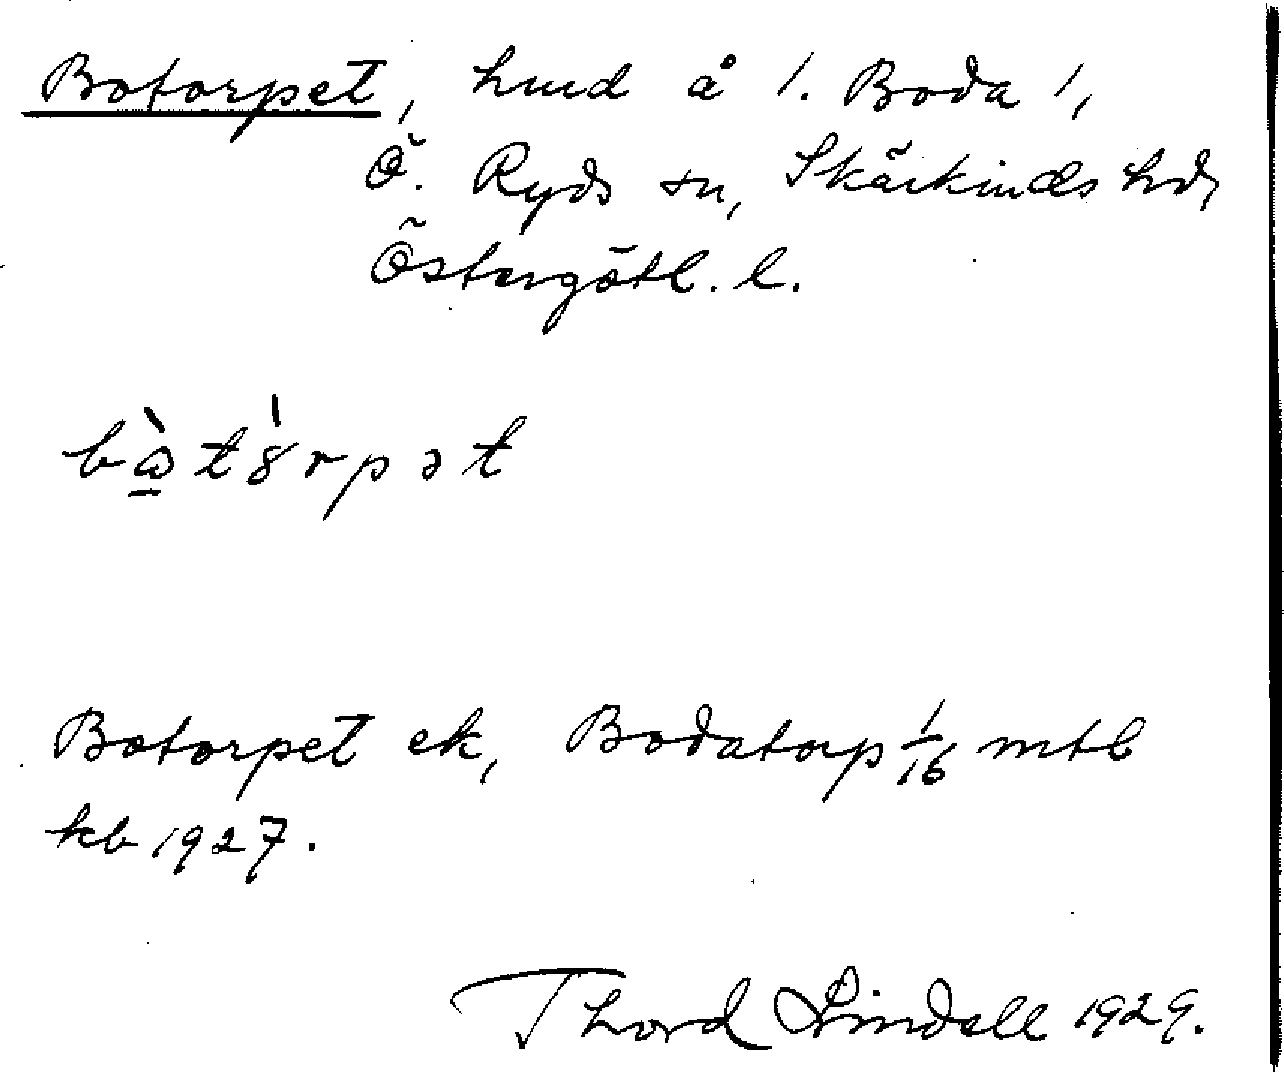 Botorpet, hmd å 1. Boda 1,
Ö. Ryds sn, Skärkinds hd,
Östergötl. l.
Botorpet ek, Bodatorp 1/16 mtl
kb 1927.
Thord Lindell 1929.